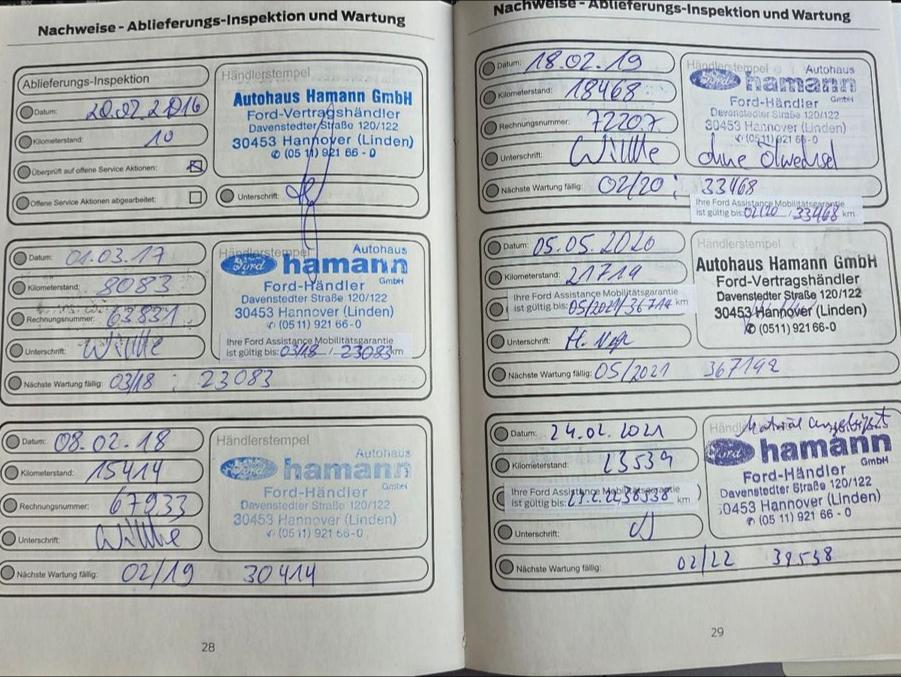 Nachweise - Ablieferungs-Inspektion und Wartung
Ablieferungs-Inspektion
Datum: 20.02.2016
Kilometerstand: 10
Überprüft auf offene Service Aktionen:
Offene Service Aktionen abgearbeitet:
Händlerstempel
Autohaus Hamann GmbH
Ford-Vertragshändler
Davenstedter Straße 120/122
30453 Hannover (Linden)
✆ (05 11) 921 66 - 0
Unterschrift:
Datum: 01.03.17
Kilometerstand: 8083
Rechnungsnummer: 63831
Unterschrift: Willke
Händlerstempel
Autohaus
Ford hamann
GmbH
Ford-Händler
Davenstedter Straße 120/122
30453 Hannover (Linden)
✆ (05 11) 921 66-0
Ihre Ford Assistance Mobilitätsgarantie
ist gültig bis: 03/18 / 23083 km
Nächste Wartung fällig: 03/18 : 23083
Datum: 08.02.18
Kilometerstand: 15414
Rechnungsnummer: 67933
Unterschrift: Willke
Händlerstempel
Autohaus
Ford hamann
GmbH
Ford-Händler
Davenstedter Straße 120/122
30453 Hannover (Linden)
✆ (05 11) 921 66-0
Nächste Wartung fällig: 02/19 30414
28
Nachweise - Ablieferungs-Inspektion und Wartung
Datum: 18.02.19
Kilometerstand: 18468
Rechnungsnummer: 72207
Unterschrift: Willke
Händlerstempel
Autohaus
Ford hamann
GmbH
Ford-Händler
Davenstedter Straße 120/122
30453 Hannover (Linden)
✆ (05 11) 921 66-0
ohne Ölwechsel
Nächste Wartung fällig: 02/20 : 33468
Ihre Ford Assistance Mobilitätsgarantie
ist gültig bis: 02/20 / 33468 km
Datum: 05.05.2020
Kilometerstand: 21719
Ihre Ford Assistance Mobilitätsgarantie
ist gültig bis: 05/2021/36714 km
Unterschrift:
Händlerstempel
Autohaus Hamann GmbH
Ford-Vertragshändler
Davenstedter Straße 120/122
30453 Hannover (Linden)
✆ (0511) 921 66-0
Nächste Wartung fällig: 05/2021 367192
Datum: 24.02.2021
Kilometerstand: 23539
Ihre Ford Assistance Mobilitätsgarantie
ist gültig bis: km
Unterschrift:
Material
Ford hamann
GmbH
Ford-Händler
Davenstedter Straße 120/122
30453 Hannover (Linden)
✆ (05 11) 921 66 - 0
Nächste Wartung fällig: 02/22 39538
29